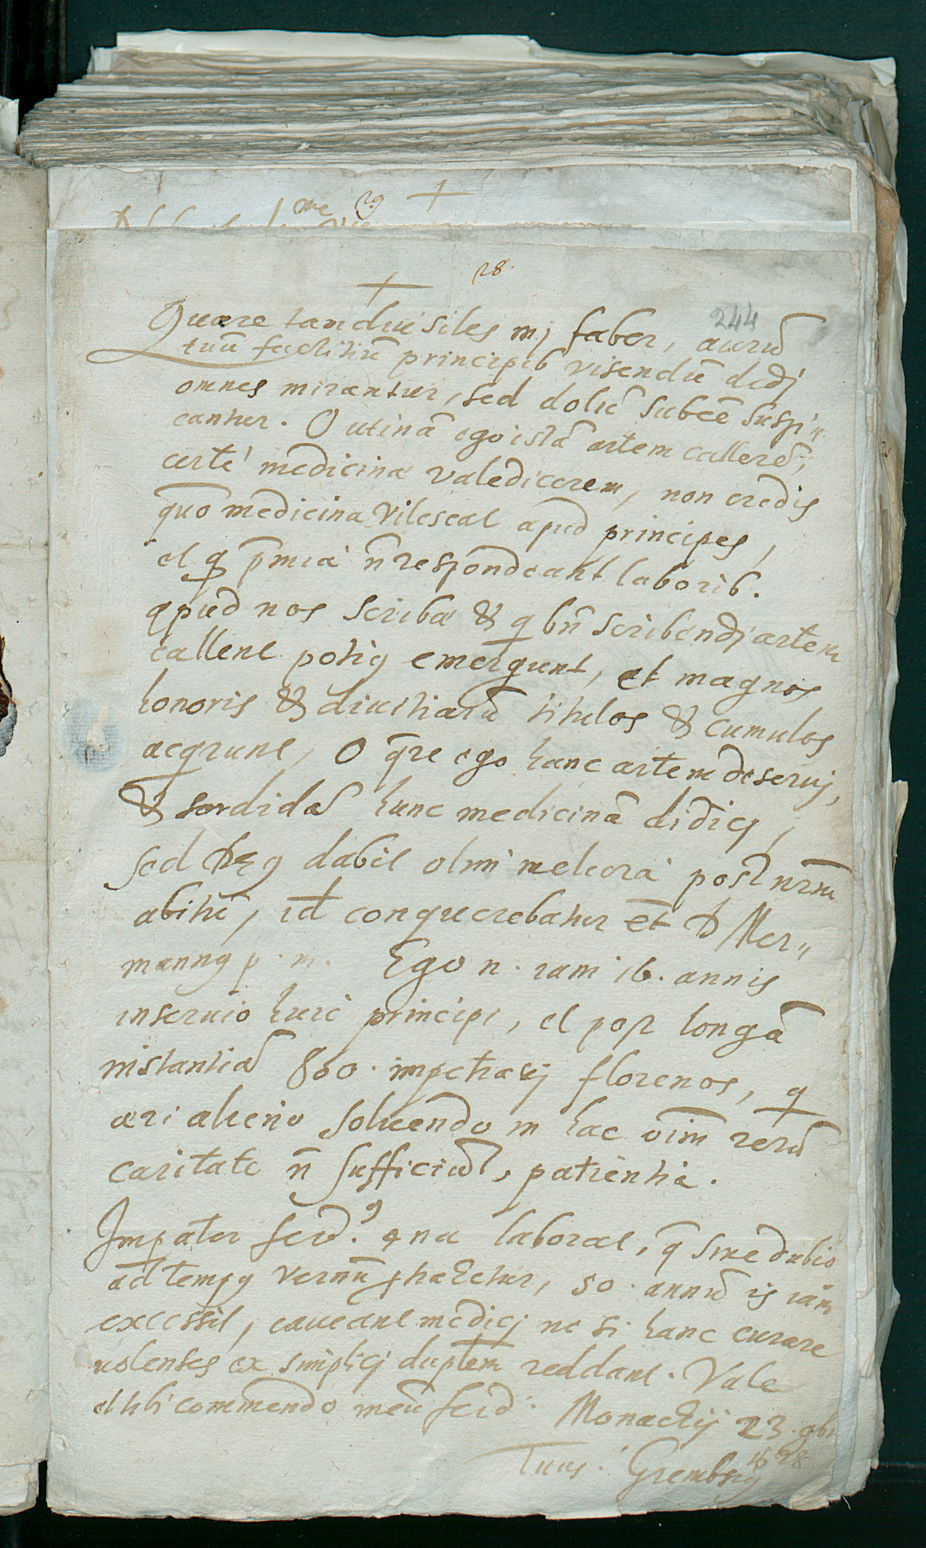 me 29 +
28.
+
244
Quare tandiu siles mj faber, aurū
tuū factitiū principib visendū dedj
omnes mirantur, sed dolū subēē suspi„
cantur. O utinā ego istā artem callerē,
certe medicinæ valedicerem, non credis
quo medicina vilescat apud principes,
et q p̄mia n̄ respondeant laborib.
apud nos scribæ & q bn̄ scribendj artem
callent potiꝰ emergunt, et magnos
honoris & diuitiarū titulos & cumulos
acqrunt, O q̄re ego hanc artem deseruj,
& sordidā hanc medicinā didicj,
sed dabit olim meliora post nrm̄
abitū, id conquerebatur et D Mer„
mannꝰ p. n. Ego n. iam 16. annis
inseruio huic principi, et post longā
instantiā 800. impetrauj florenos, q
æri alieno soluendo in hac oim̄ rerū
caritate n̄ sufficiūt, patientia.
Impater ferd.ꝰ 4na laborat, q̄ sine dubio
ad tempꝰ vernū trahetur, 50. annū is iam
excessit, caueant medicj ne si hanc curare
uolentes ex simplicj duplem reddant. Vale
et tibi commendo meū ferd. Monachij 23. 9br
1628
Tuus. Grembsꝰ